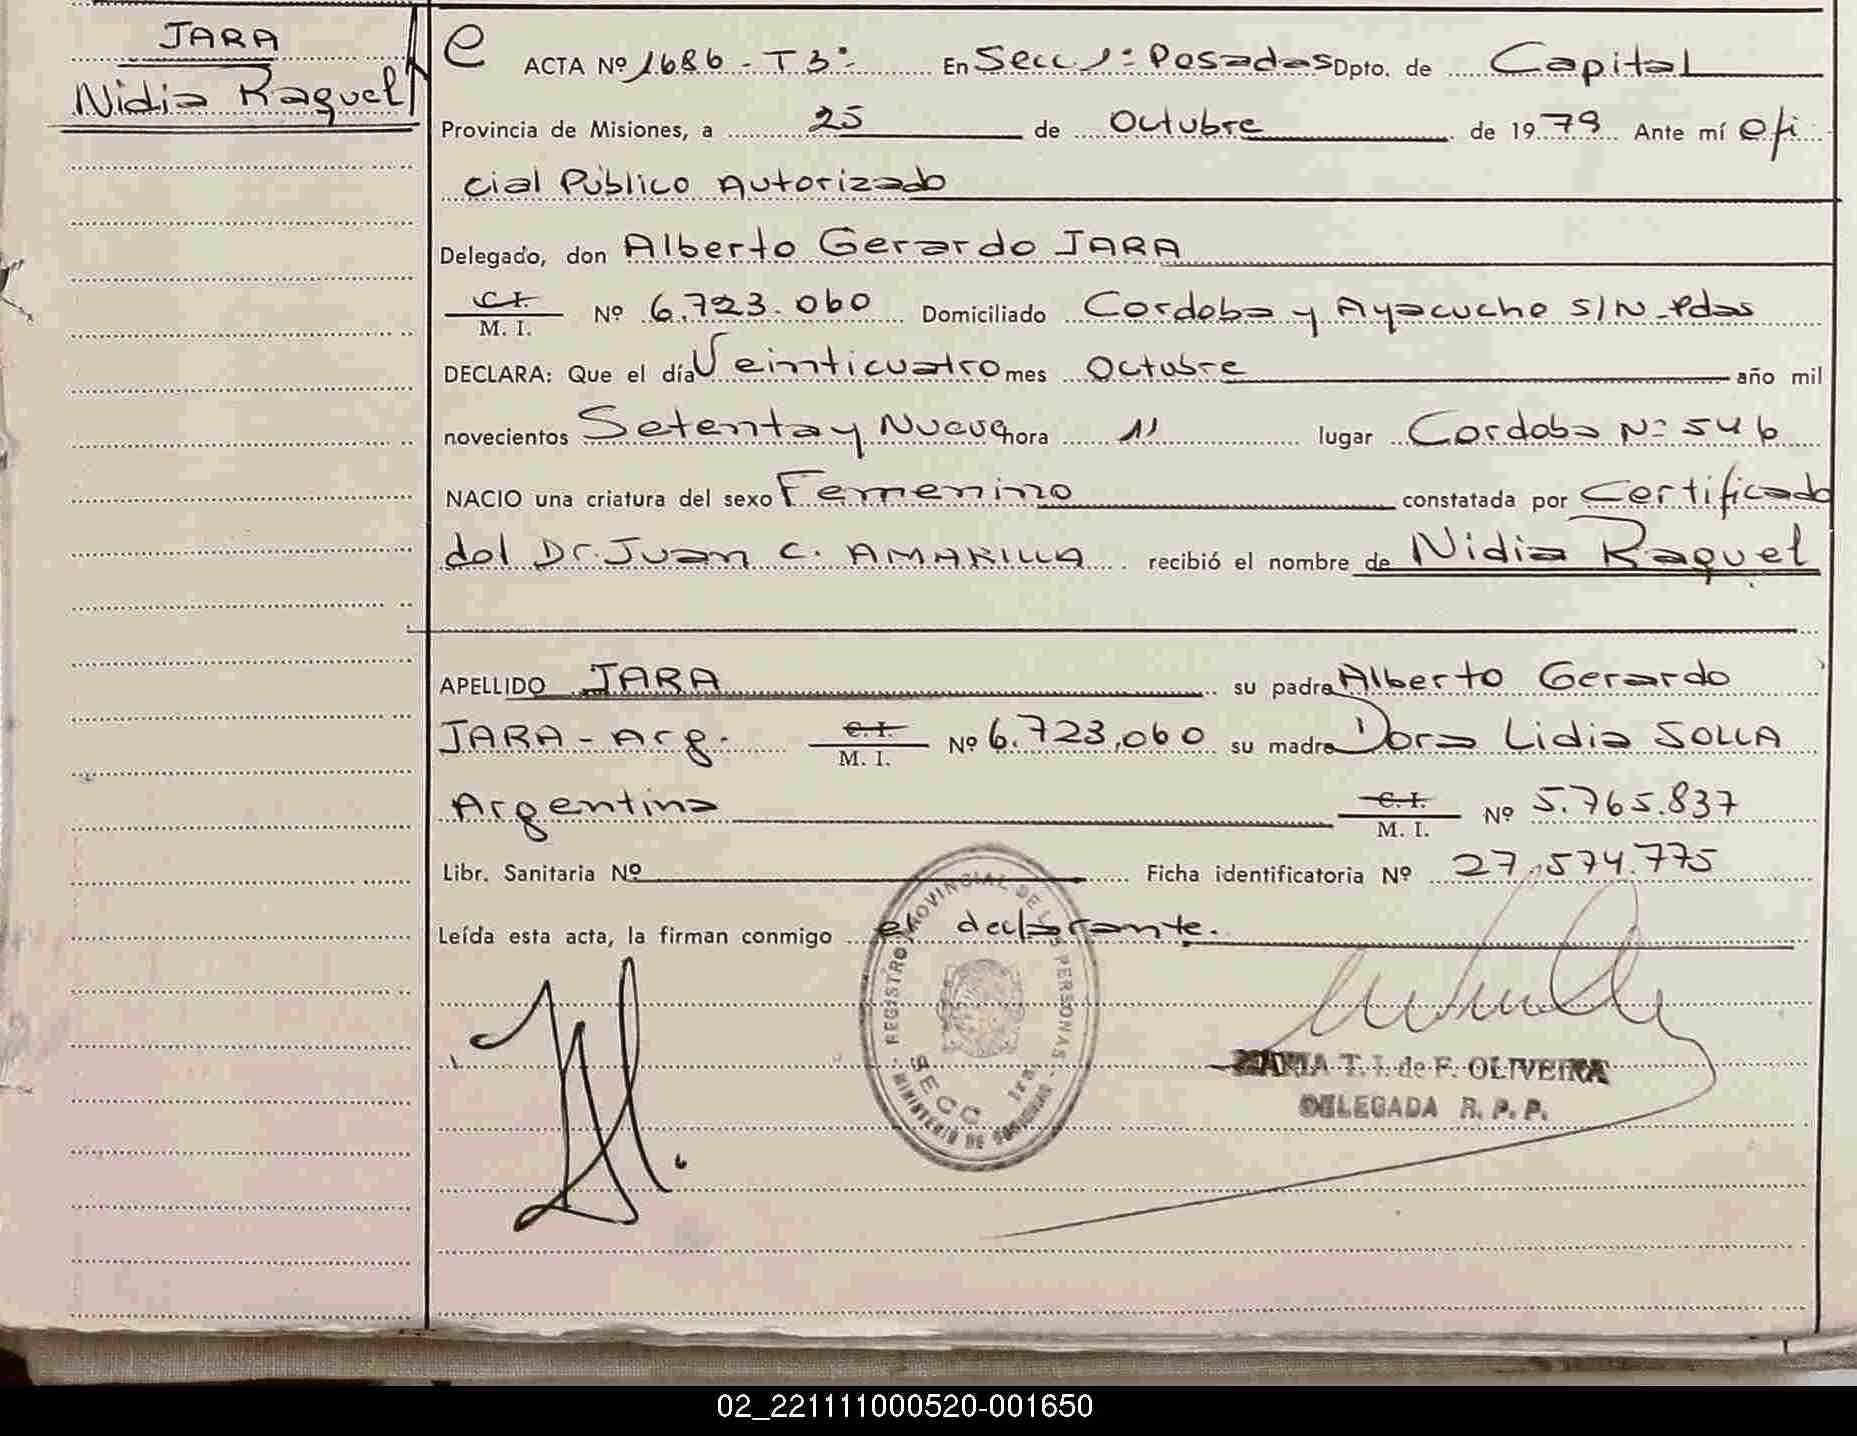 JARA
Nidia Raquel
e ACTA Nº 1686 - T3º En Secc 1ª Posadas Dpto. de Capital
Provincia de Misiones, a 25 de Octubre de 1979 Ante mí Ofi
cial Público Autorizado
Delegado, don Alberto Gerardo JARA
C.I. Nº 6.723.060 Domiciliado Cordoba y Ayacucho S/N-Pdas
M. I.
DECLARA: Que el día Veinticuatro mes Octubre año mil
novecientos Setenta y Nueve hora 11 lugar Cordoba Nº 546
NACIO una criatura del sexo Femenino constatada por Certificado
del Dr. Juan C. AMARILLA recibió el nombre de Nidia Raquel
APELLIDO JARA su padre Alberto Gerardo
JARA - Arg. C.I. Nº 6.723.060 su madre Dora Lidia SOLLA
M. I.
Argentina C.I. Nº 5.765.837
M. I.
Libr. Sanitaria Nº Ficha identificatoria Nº 27.574.775
Leída esta acta, la firman conmigo el declarante.
REGISTRO PROVINCIAL DE LAS PERSONAS
SECC 1ra
MINISTERIO DE GOBIERNO
MARIA T. I. de F. OLIVEIRA
DELEGADA R. P. P.
02_221111000520-001650